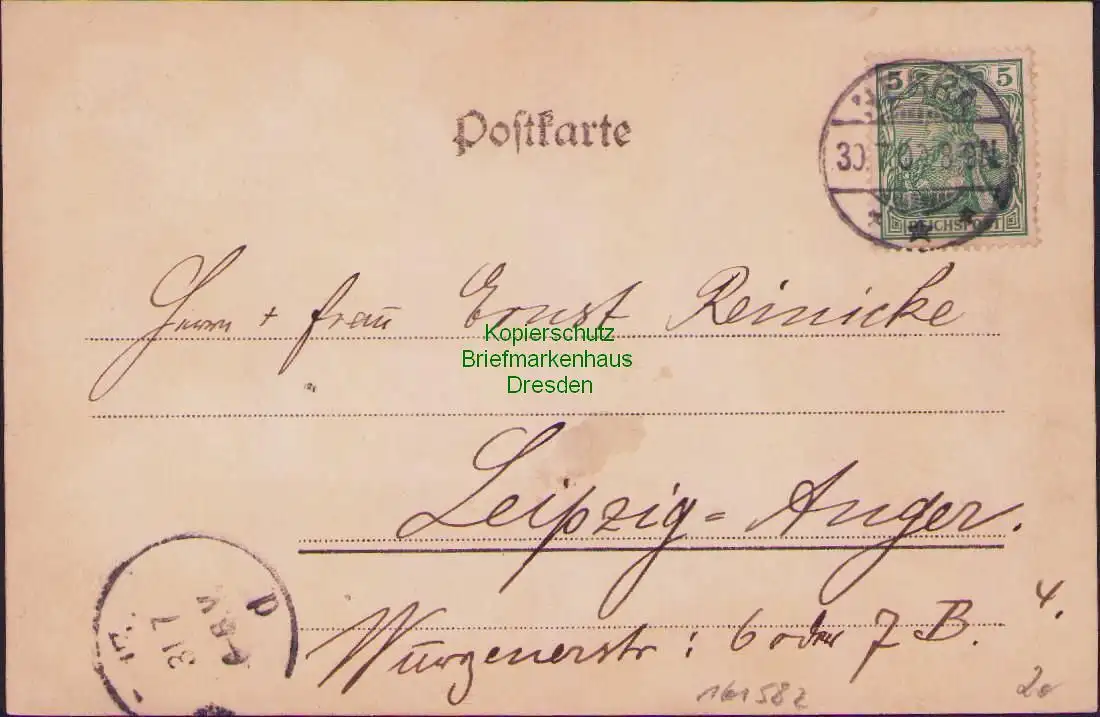 Postkarte
5 5
REICHSPOST
Herrn + Frau Ernst Reinicke
Kopierschutz
Briefmarkenhaus
Dresden
Leipzig-Anger.
Wurzenerstr: 6 oder 7 B. 4.
31 7
161582
20